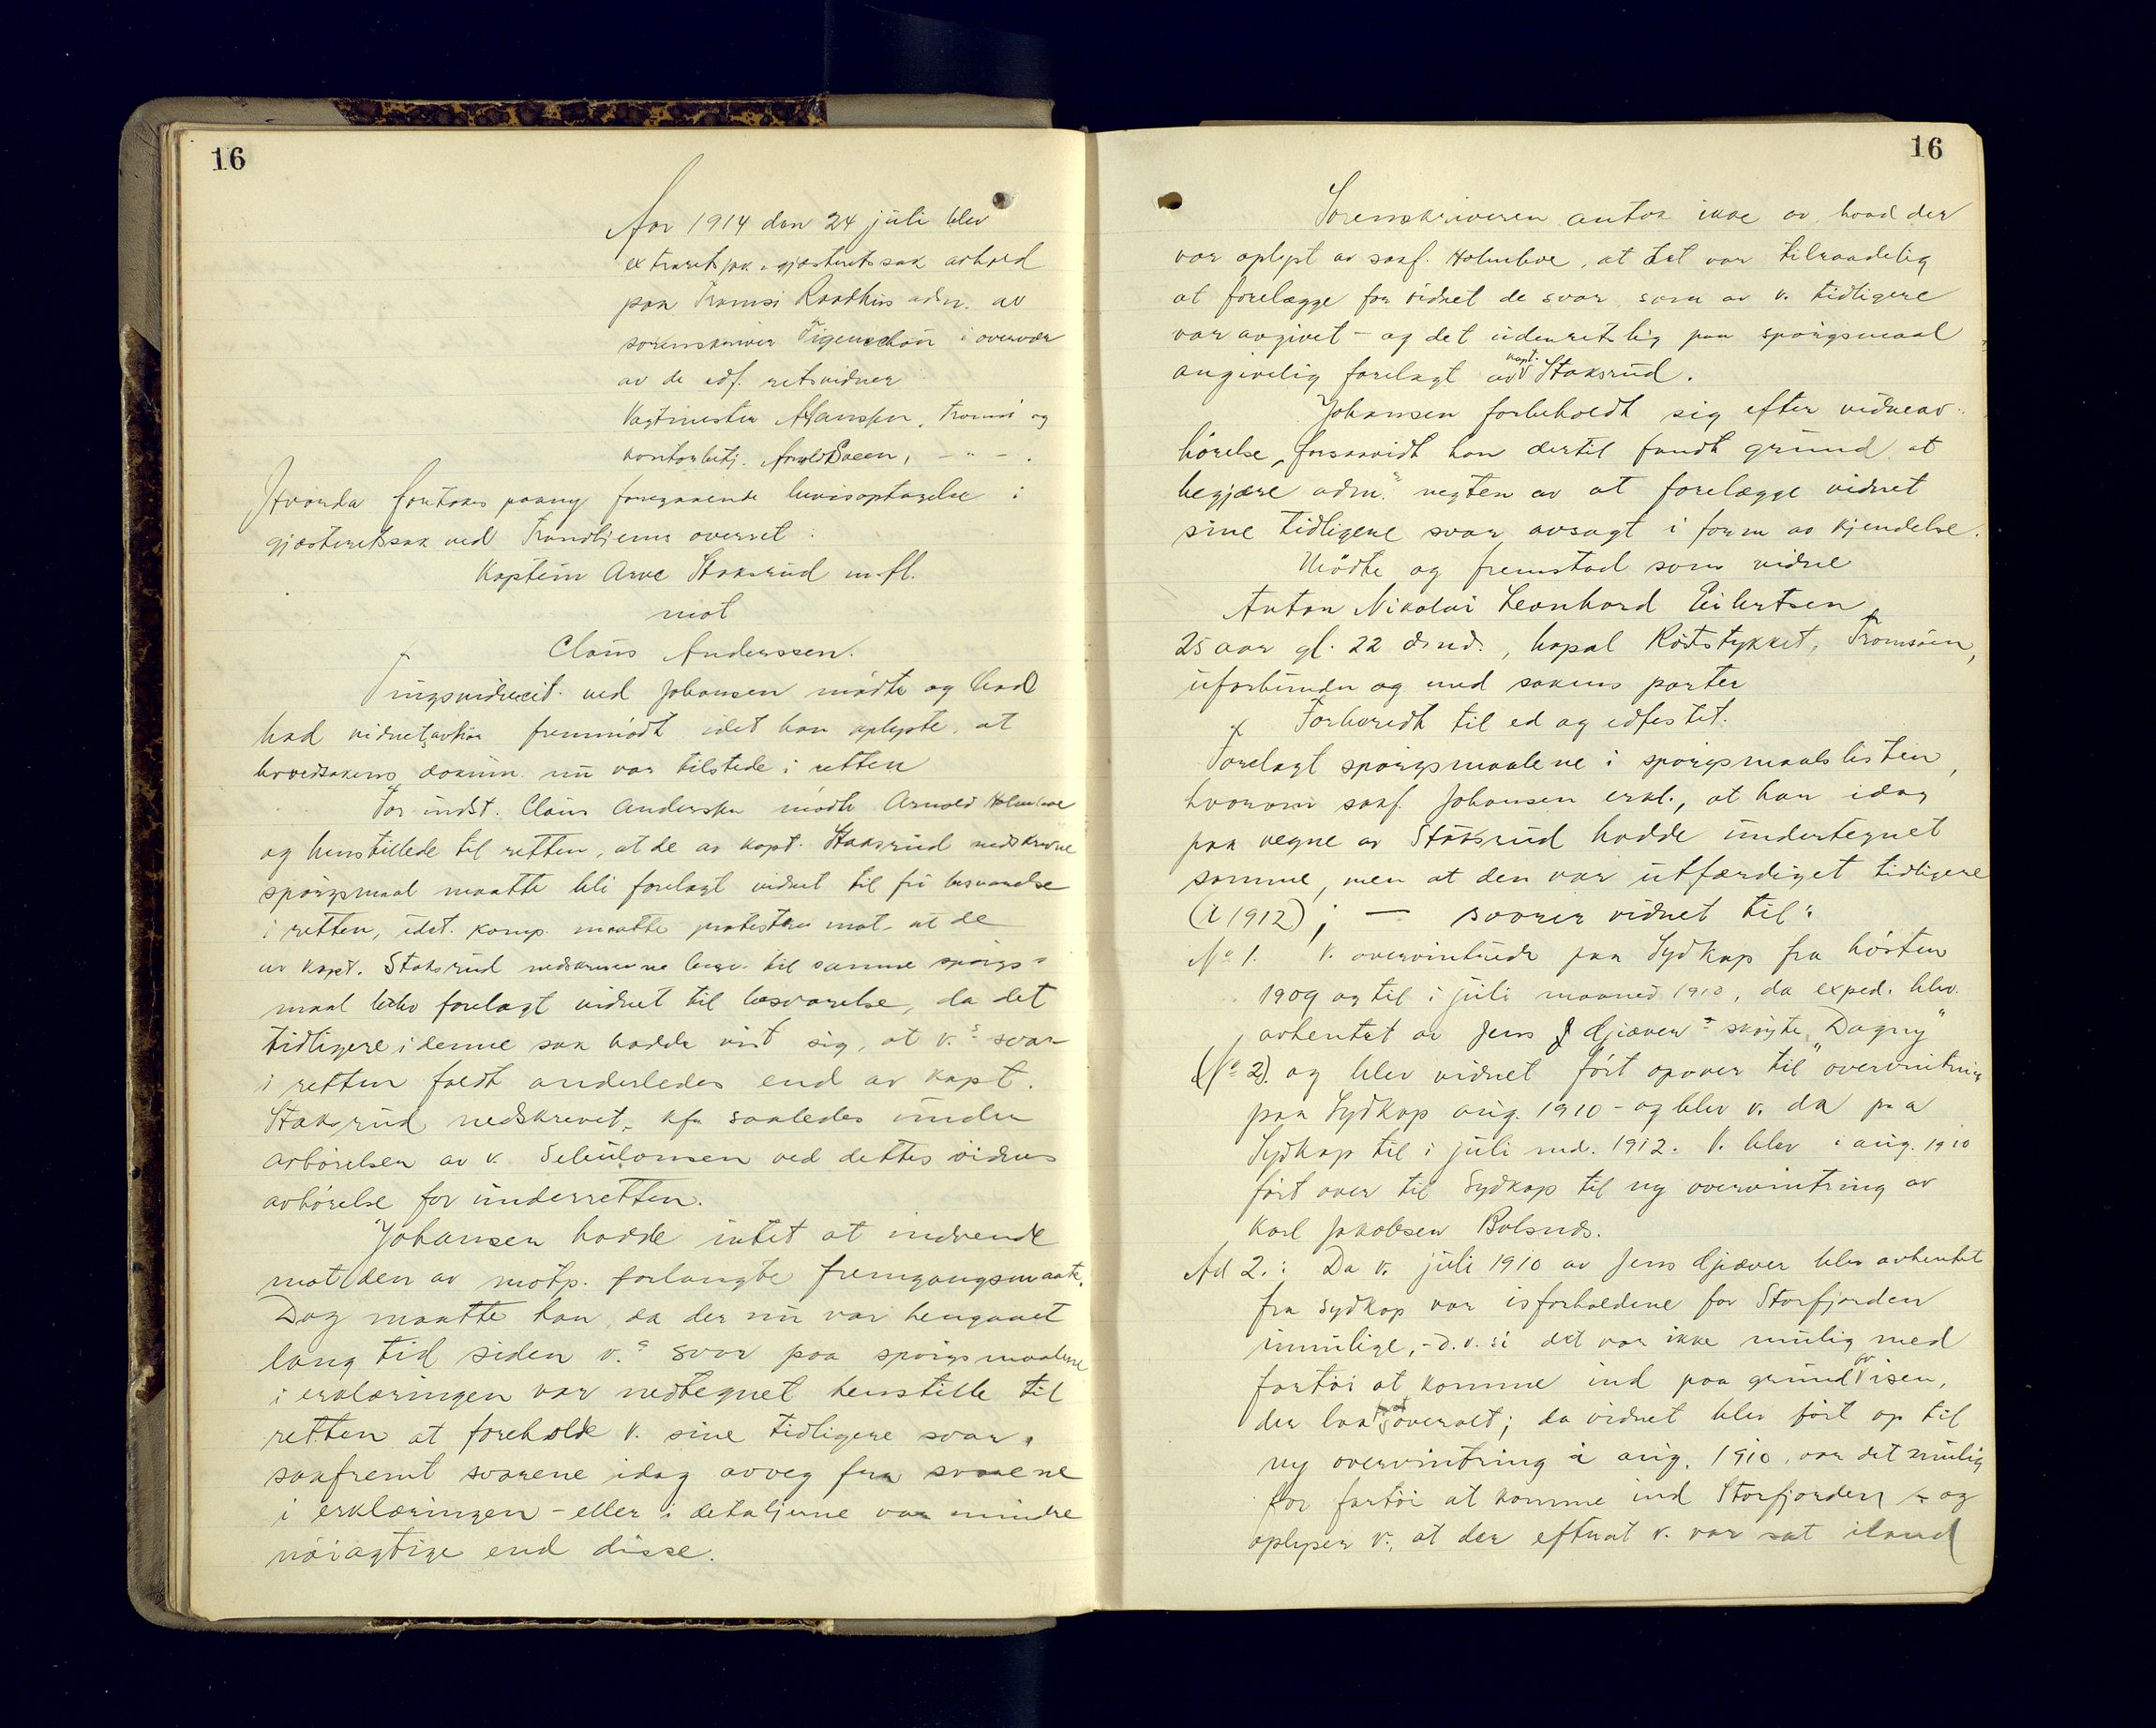 16
Aar 1914 den 24 juli blev
extraretspr. i gjæsteretssak avhold
paa Tromsö Raadhus adm. av
sorenskriver Figenschou i overvær
av de edf. retsvidner
Vagtmester A Hanssen, Tromsö og
kontorbetj. Arnold Saeen, - " - .
Hvorda foretokes paany foregaaende bevisoptagelse i
gjæsteretssak ved Trondhjems overret:
Kaptein Arve Staksrud m. fl.
mot
Claus Anderssen.
Tingsvidnecit. ved Johansen mödte og bad
had vidnet fremmödt idet han oplyste, at
hovedsakens dokum. nu var tilstede i retten
For indst. Claus Anderssen mödte Arnold Holmboe
og henstillede til retten, at de av kapt. Staksrud nedskrevne
spörgsmaal maatte bli forelagt vidnet til fri besvarelse
i retten, idet komp. maatte protestere mot at de
av kapt. Staksrud nedskrevne besv. til samme spörgs-
maal blev forelagt vidnet til besvarelse, da det
tidligere i denne sak hadde vist sig, at v.s svar
i retten faldt anderledes end av kapt.
Staksrud nedskrevet, kfr saaledes under
avhörelsen av v. Sebulonsen ved dettes vidnes
avhörelse for underretten.
Johansen hadde intet at indvende
mot den av motp. forlangte fremgangsmaate.
Dog maatte han, da der nu var hengaaet
lang tid siden v.s svar paa spörgsmaalene
i erklæringen var nedtegnet henstille til
retten at foreholde v. sine tidligere svar,
saafremt svarene idag avveg fra svarene
i erklæringen - eller i detaljerne var mindre
nöiagtige end disse.
16
Sorenskriveren antok ikke av hvad der
var oplyst av sakf. Holmboe, at det var tilraadelig
at forelægge for vidnet de svar som av v. tidligere
var avgivet - og det udenretslig paa spörgsmaal
angivelig forelagt av kapt. Staksrud.
Johansen forbeholdt sig efter vidneav-
hörelse, forsaavidt han dertil fandt grund at
begjære adm.s negten av at forelægge vidnet
sine tidligere svar avsagt i form av kjendelse.
Mödte og fremstod som vidne
Anton Nikolai Leonhard Eilertsen
25 aar gl. 22 dsmd., bopæl Rödstykket, Tromsöen,
uforbunden og med sakens parter
Forberedt til ed og edfestet.
Forelagt spörgsmaalene i spörgsmaalslisten,
hvorom sakf. Johansen erkl., at han idag
paa vegne av Staksrud hadde undertegnet
samme, men at den var utfærdiget tidligere
(i 1912); - svarer vidnet til:
No 1. V. overvintrede paa Sydkap fra hösten
1909 og til i juli maaned 1910, da exped. blev
avhentet av Jens Gjæver's sköite "Dagny"
(No 2). og blev vidnet fört opover til overvintring
paa Sydkap aug. 1910 - og blev v. da paa
Sydkap til i juli md. 1912. V. blev i aug. 1910
fört over til Sydkap til ny overvintring av
Karl Jakobsen Bolsnds.
Ad 2.: Da v. juli 1910 av Jens Gjæver blev avhentet
fra Sydkap var isforholdene for Storfjorden
umulige, - d. v. si det var ikke mulig med
fartöi at komme ind paa grund av isen,
der laa tæt overalt; da vidnet blev fört op til
ny overvintring i aug. 1910, var det mulig
for fartöi at komme ind Storfjorden - og
oplyser v., at der efterat v. var sat iland